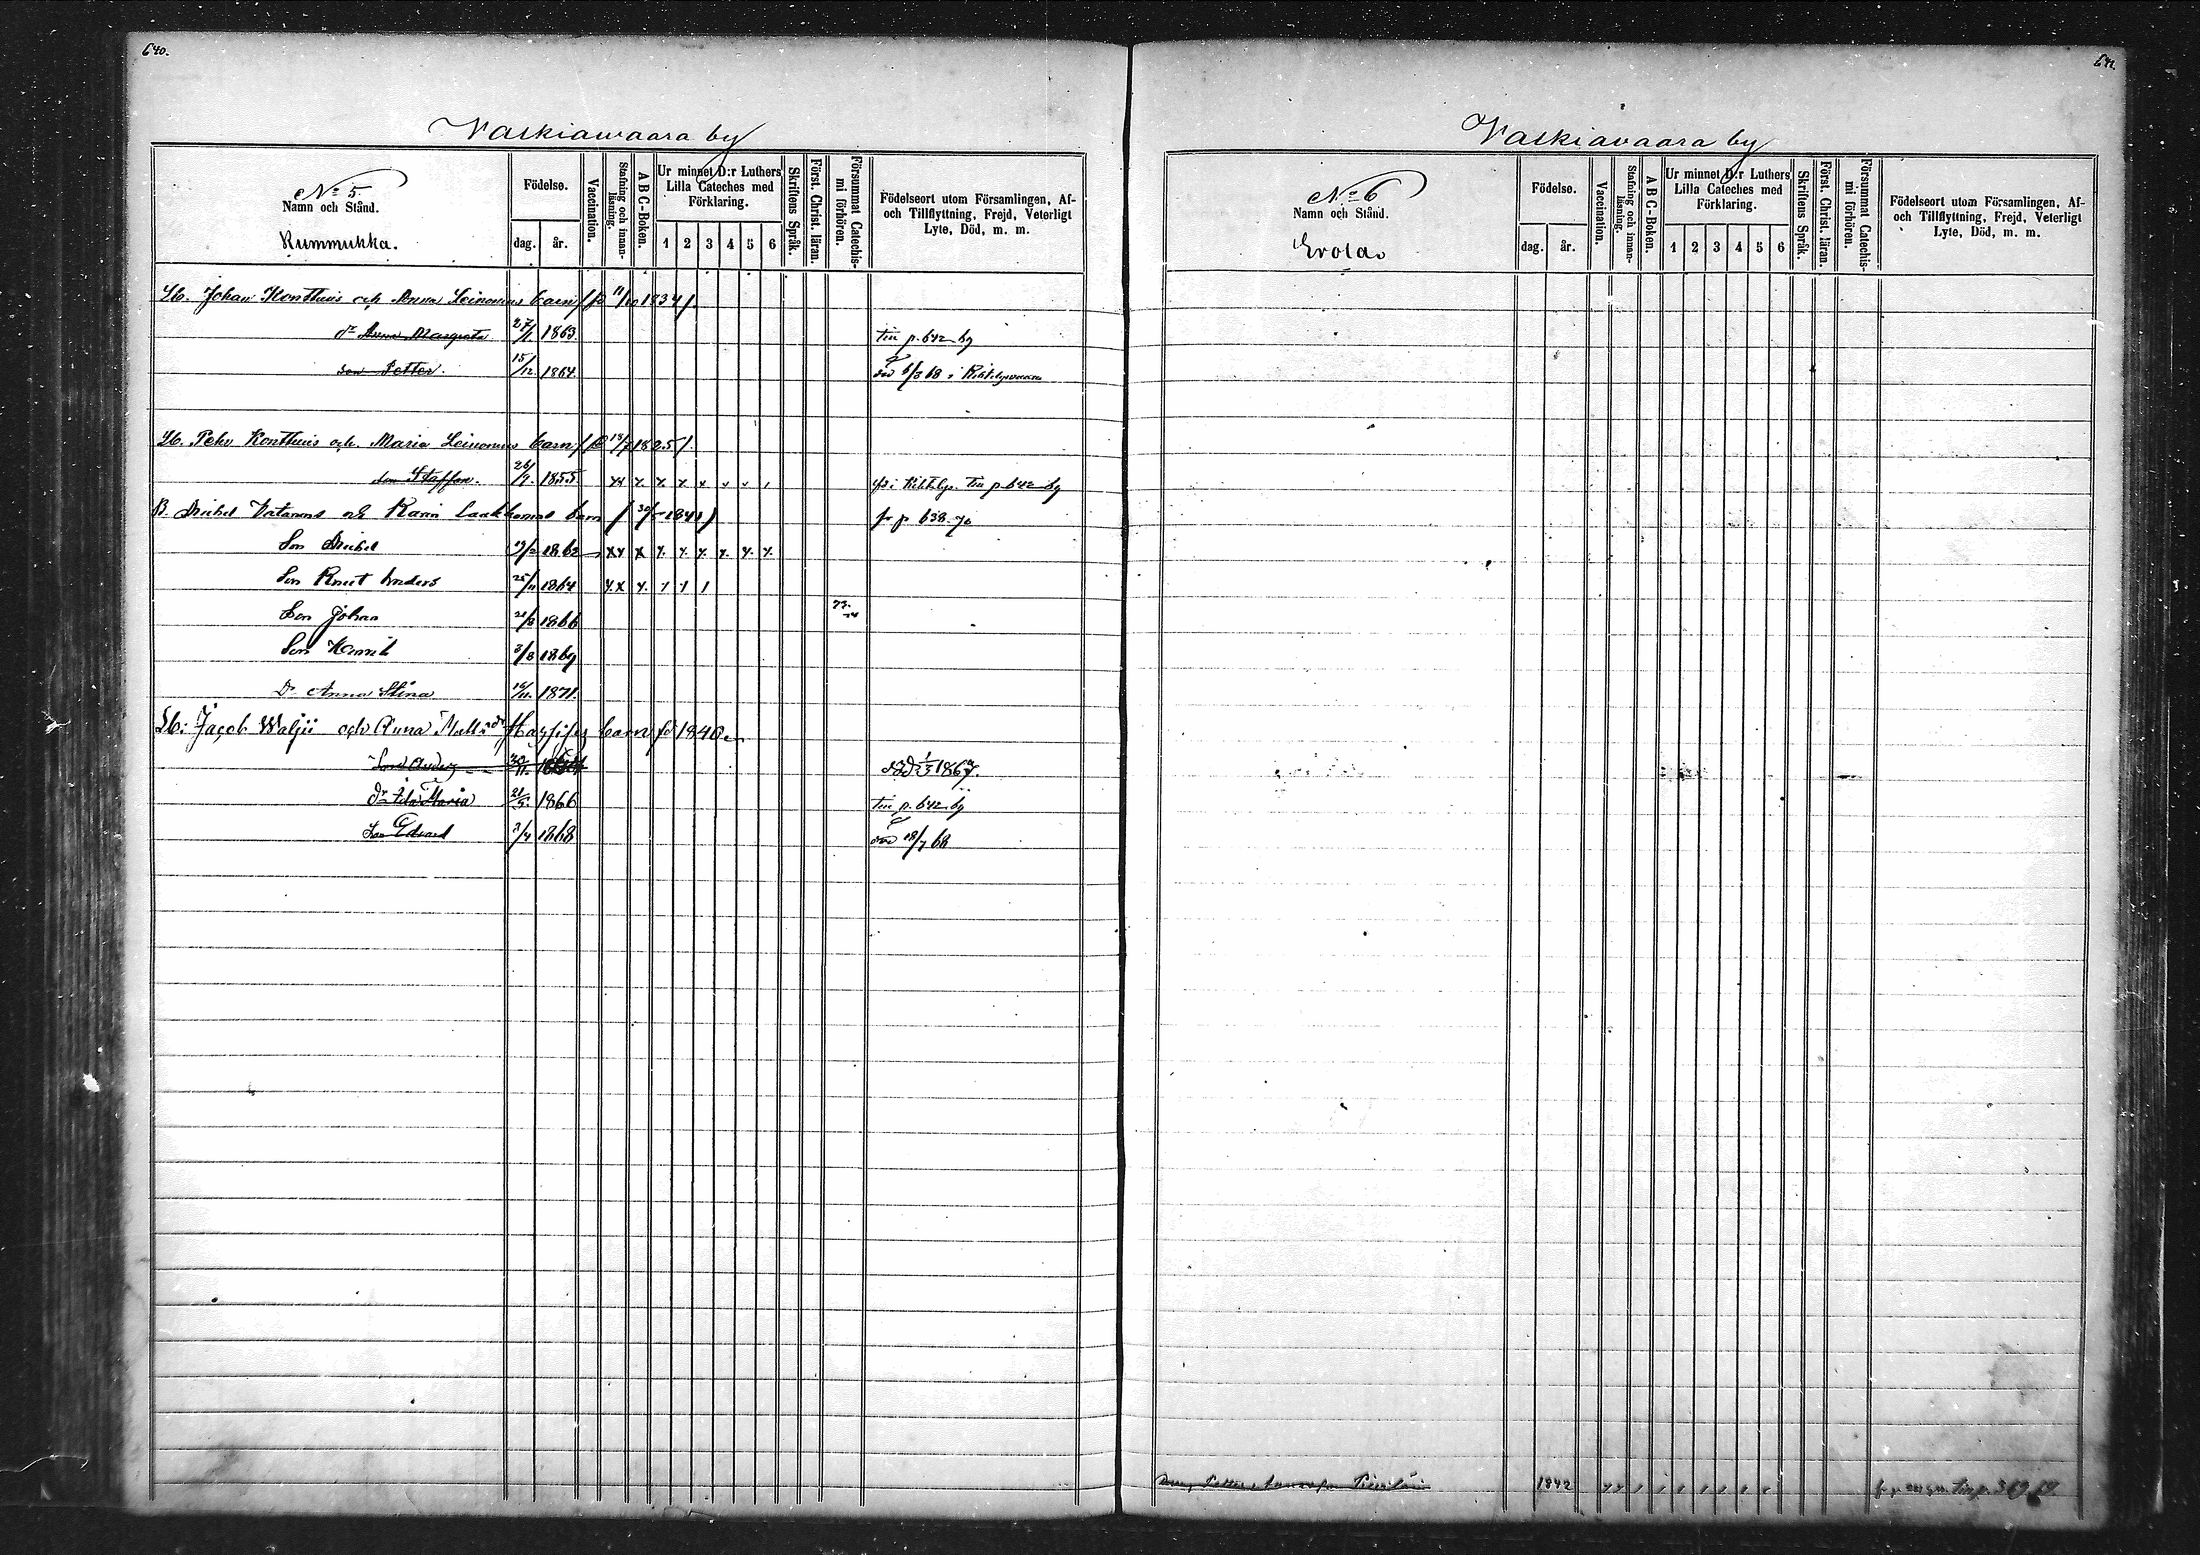 640.
Vaskiavaara by
No 5.
Namn och Stånd.
Rummukka.
Födelse.
dag. år.
Vaccination.
Stafning och innan-läsning.
A B C-Boken.
Ur minnet D:r Luthers Lilla Cateches med Förklaring.
1 2 3 4 5 6
Skriftens Språk.
Först. Christ. läran.
Försummat Catechismi förhören.
Födelseort utom Församlingen, Af- och Tillflyttning, Frejd, Veterligt Lyte, Död, m. m.
Johan Konttinis och Anna Leinonens barn 11/10 1834
dr Anna Margreta 27/1 1863. Till p. 642 69
son Petter. 15/12 1864. död 6/3 68 i
Pehr Konttinis och Maria Leinonens barn 1825
son Staffan. 26/9. 1855 x x x x x Tin p. 642 69
B. Michel Vatanens och Karin Laakkonens barn 30/ 1841 fr p 638. 70
Son Michel 1862 x x x x x x x x
Son Knut Anders 25/11 1864 x x x 1 1 1
Son Johan 1866
Son Henrik 3/8 1869
Dr Anna Stina 16/11. 1871.
Jacob Waljii och Anna barn fd 1840
Son Anders 30/11 död 1867.
dr Ida Maria 21/5 1866 Tin p. 642 69
Son Edvard 2/4 1868 död 18/7 68
641.
Vaskiavaara by
No 6
Namn och Stånd.
Erola
Födelse.
dag. år.
Vaccination.
Stafning och innan-läsning.
A B C-Boken.
Ur minnet D:r Luthers Lilla Cateches med Förklaring.
1 2 3 4 5 6
Skriftens Språk.
Först. Christ. läran.
Försummat Catechismi förhören.
Födelseort utom Församlingen, Af- och Tillflyttning, Frejd, Veterligt Lyte, Död, m. m.
Petter 1842